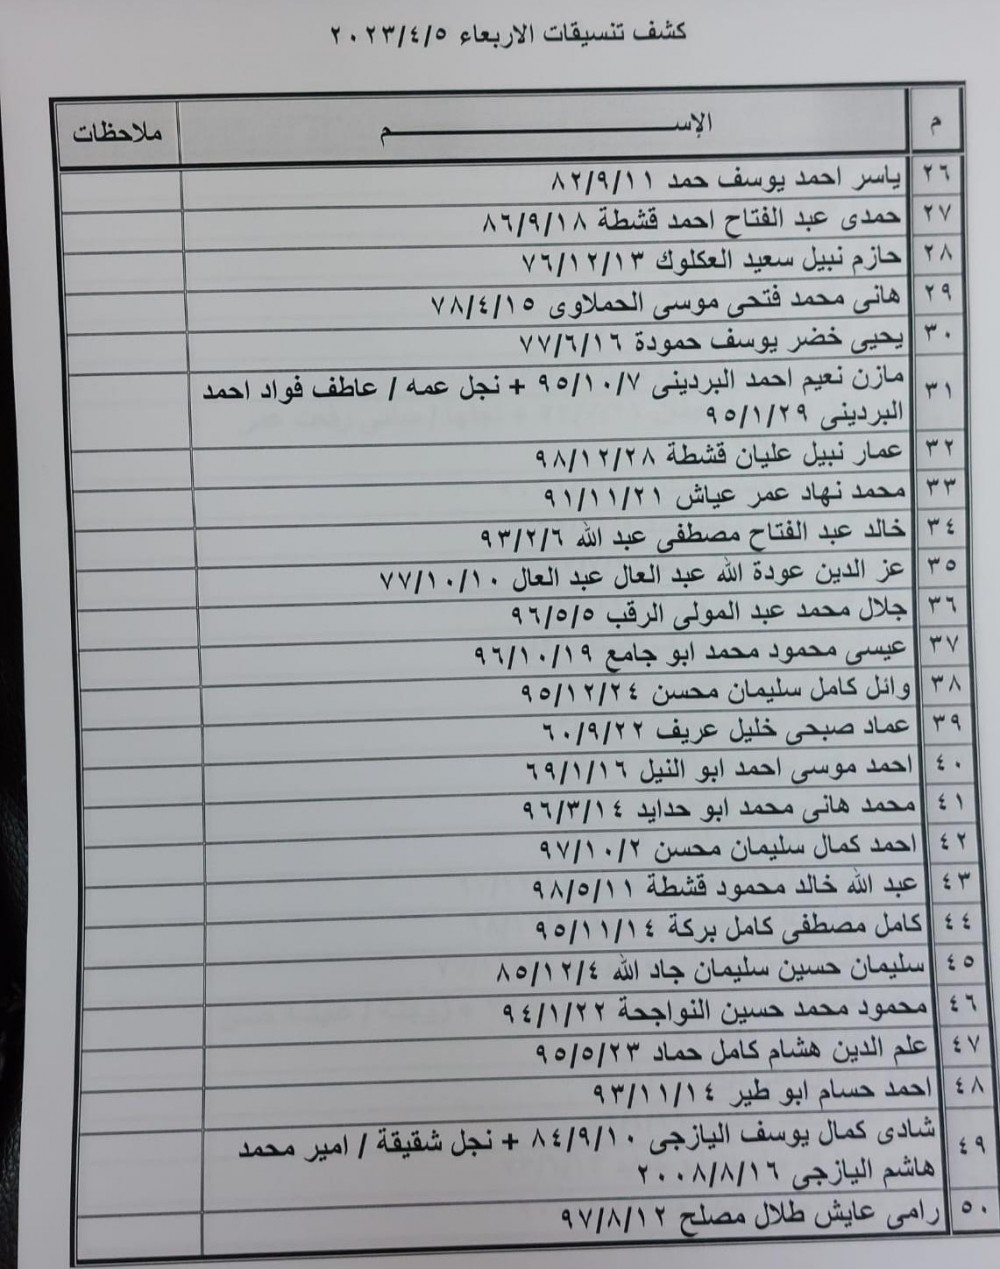 كشف تنسيقات الاربعاء ٢٠٢٣/٤/٥
م الإســـــــــــــــم ملاحظات
٢٦ ياسر احمد يوسف حمد ٨٢/٩/١١
٢٧ حمدى عبد الفتاح احمد قشطة ٨٦/٩/١٨
٢٨ حازم نبيل سعيد العكلوك ٧٦/١٢/١٣
٢٩ هانى محمد فتحى موسى الحملاوى ٧٨/٤/١٥
٣٠ يحيى خضر يوسف حمودة ٧٧/٦/١٦
٣١ مازن نعيم احمد البردينى ٩٥/١٠/٧ + نجل عمه / عاطف فواد احمد
البردينى ٩٥/١/٢٩
٣٢ عمار نبيل عليان قشطة ٩٨/١٢/٢٨
٣٣ محمد نهاد عمر عياش ٩١/١١/٢١
٣٤ خالد عبد الفتاح مصطفى عبد الله ٩٣/٢/٦
٣٥ عز الدين عودة الله عبد العال عبد العال ٧٧/١٠/١٠
٣٦ جلال محمد عبد المولى الرقب ٩٦/٥/٥
٣٧ عيسى محمود محمد ابو جامع ٩٦/١٠/١٩
٣٨ وائل كامل سليمان محسن ٩٥/١٢/٢٤
٣٩ عماد صبحى خليل عريف ٦٠/٩/٢٢
٤٠ احمد موسى احمد ابو النيل ٦٩/١/١٦
٤١ محمد هانى محمد ابو حدايد ٩٦/٣/١٤
٤٢ احمد كمال سليمان محسن ٩٧/١٠/٢
٤٣ عبد الله خالد محمود قشطة ٩٨/٥/١١
٤٤ كامل مصطفى كامل بركة ٩٥/١١/١٤
٤٥ سليمان حسين سليمان جاد الله ٨٥/١٢/٤
٤٦ محمود محمد حسين النواجحة ٩٤/١/٢٢
٤٧ علم الدين هشام كامل حماد ٩٥/٥/٢٣
٤٨ احمد حسام ابو طير ٩٣/١١/١٤
٤٩ شادى كمال يوسف اليازجى ٨٤/٩/١٠ + نجل شقيقة / امير محمد
هاشم اليازجى ٢٠٠٨/٨/١٦
٥٠ رامى عايش طلال مصلح ٩٧/٨/١٢